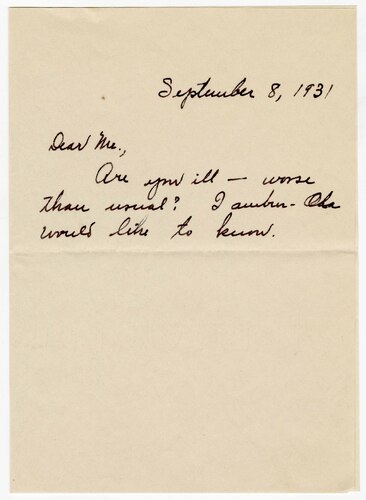 September 8, 1931
Dear Me.,
Are you ill — worse
than usual? I
would like to know.